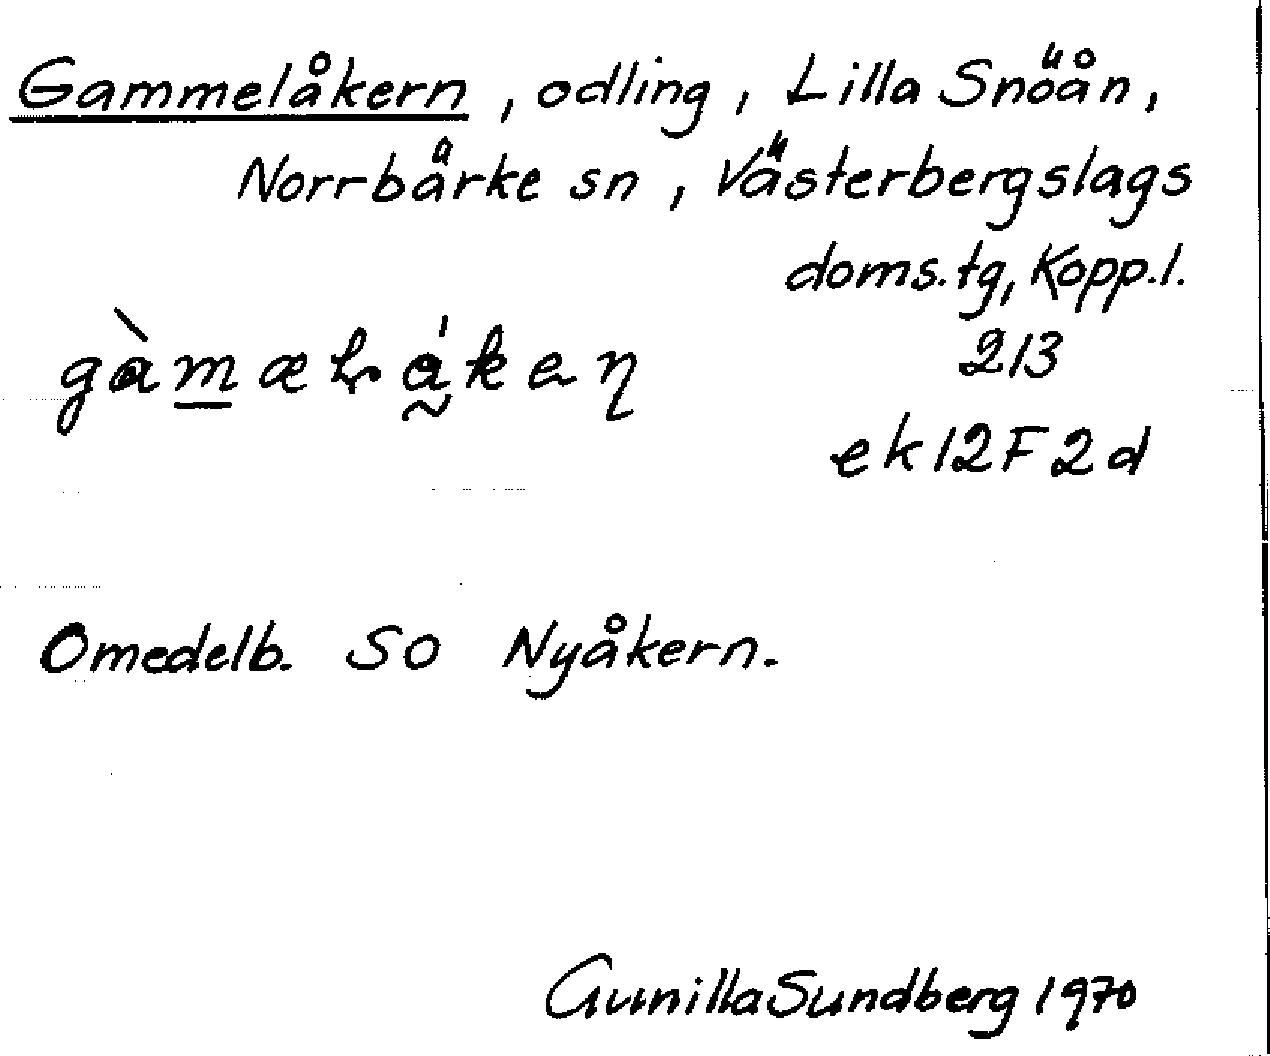 Gammelåkern, odling, Lilla Snöån,
Norrbärke sn, Västerbergslags
doms.tg, Kopp.l.
213
gàmæɫåkeɳ
ek 12F 2d
Omedelb. SO Nyåkern.
Gunilla Sundberg 1970